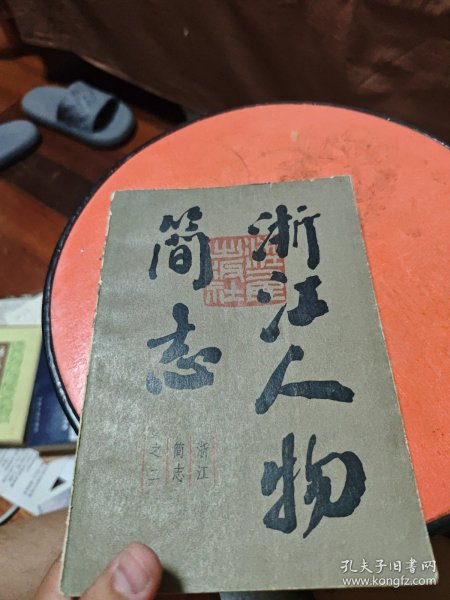 浙江人物
简志
浙江
简志
之二
孔夫子旧书网
www.kongfz.com